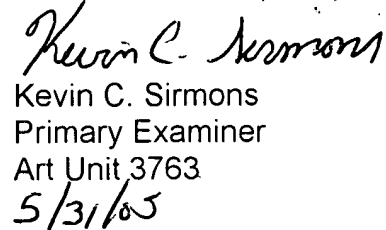 Kevin C. Sirmons
Kevin C. Sirmons
Primary Examiner
Art Unit 3763
5/31/05